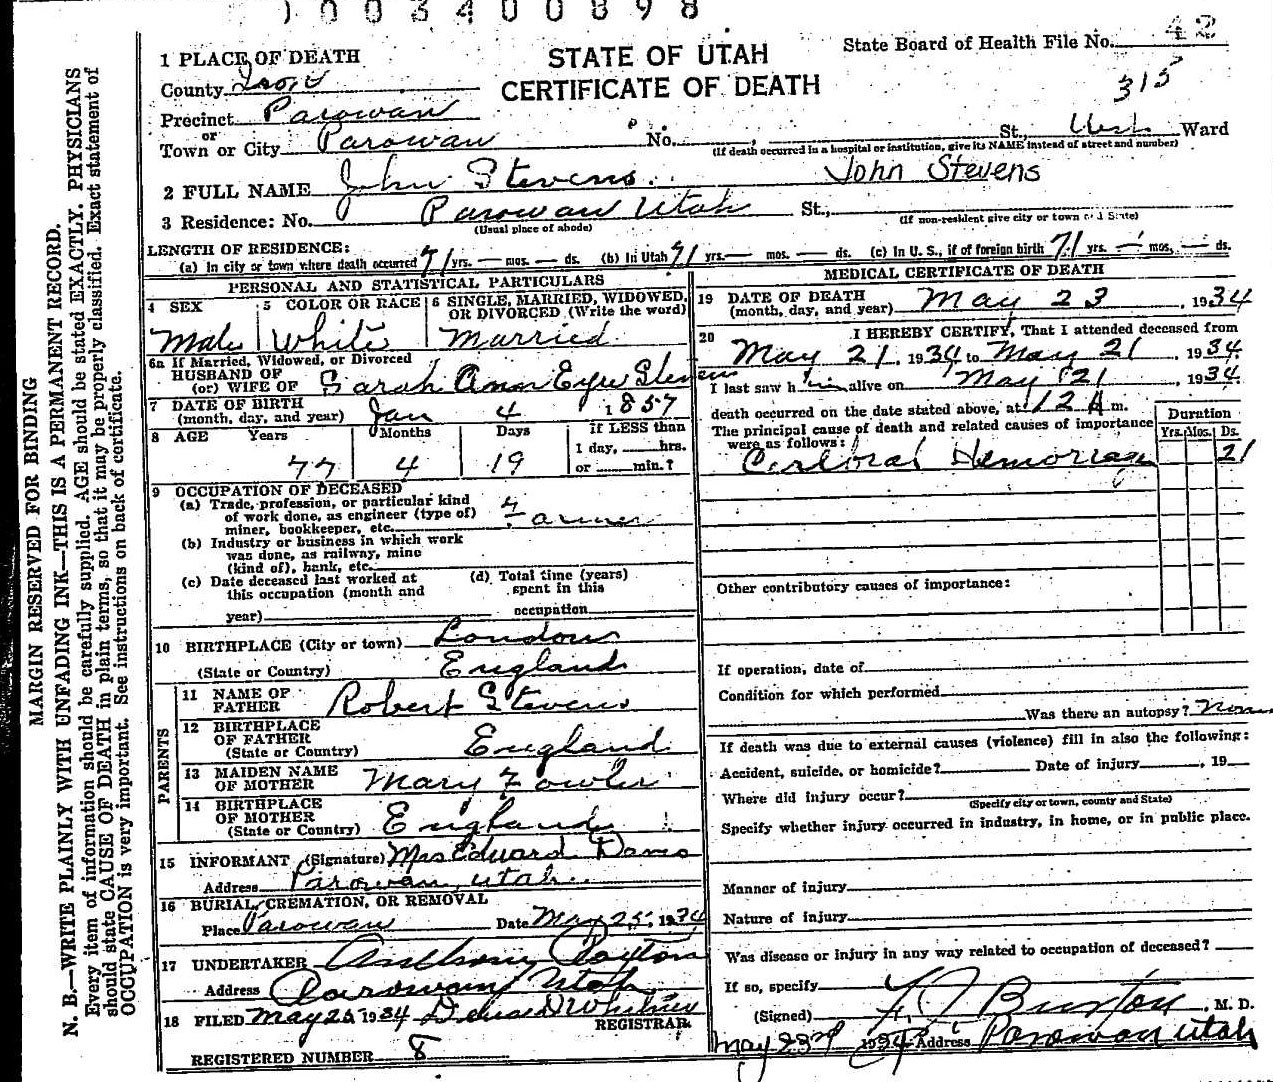 1003400898
STATE OF UTAH
CERTIFICATE OF DEATH
State Board of Health File No. 42
315
1 PLACE OF DEATH
County Iron
Precinct Parowan
or
Town or City Parowan No. St., Ward
(If death occurred in a hospital or institution, give its NAME instead of street and number)
2 FULL NAME John Stevens John Stevens
3 Residence: No. Parowan Utah St.,
(Usual place of abode) (If non-resident give city or town and State)
LENGTH OF RESIDENCE:
(a) In city or town where death occurred 71 yrs. — mos. — ds. (b) In Utah 71 yrs. — mos. — ds. (c) In U. S., if of foreign birth 71 yrs. — mos. — ds.
PERSONAL AND STATISTICAL PARTICULARS
4 SEX 5 COLOR OR RACE 6 SINGLE, MARRIED, WIDOWED, OR DIVORCED (Write the word)
Male White Married
6a If Married, Widowed, or Divorced
HUSBAND OF
(or) WIFE OF Sarah Ann Eyre Stevens
7 DATE OF BIRTH
(month, day, and year) Jan 4 1857
8 AGE Years Months Days If LESS than
1 day, hrs.
77 4 19 or min.?
9 OCCUPATION OF DECEASED
(a) Trade, profession, or particular kind
of work done, as engineer (type of)
miner, bookkeeper, etc. Farmer
(b) Industry or business in which work
was done, as railway, mine
(kind of), bank, etc.
(c) Date deceased last worked at (d) Total time (years)
this occupation (month and spent in this
year) occupation
10 BIRTHPLACE (City or town) London
(State or Country) England
PARENTS
11 NAME OF
FATHER Robert Stevens
12 BIRTHPLACE
OF FATHER
(State or Country) England
13 MAIDEN NAME
OF MOTHER Mary Fowler
14 BIRTHPLACE
OF MOTHER
(State or Country) England
15 INFORMANT (Signature) Mrs Edward Davis
Address Parowan, Utah
16 BURIAL, CREMATION, OR REMOVAL
Place Parowan Date May 25, 1934
17 UNDERTAKER Anthony Paxton
Address Parowan Utah
18 FILED May 25 1934
REGISTRAR
REGISTERED NUMBER 8
MEDICAL CERTIFICATE OF DEATH
19 DATE OF DEATH
(month, day, and year) May 23, 1934
20 I HEREBY CERTIFY, That I attended deceased from
May 21, 1934 to May 21 1934
I last saw him alive on May 21, 1934
death occurred on the date stated above, at 12 A m.
The principal cause of death and related causes of importance
were as follows:
Duration
Yrs. Mos. Ds.
Cerberal Hemorrage 21
Other contributory causes of importance:
If operation, date of
Condition for which performed
Was there an autopsy? None
If death was due to external causes (violence) fill in also the following:
Accident, suicide, or homicide? Date of injury , 19
Where did injury occur?
(Specify city or town, county and State)
Specify whether injury occurred in industry, in home, or in public place.
Manner of injury
Nature of injury
Was disease or injury in any way related to occupation of deceased?
If so, specify
(Signed) Burton, M. D.
May 23rd 1934 Address Parowan Utah
MARGIN RESERVED FOR BINDING
N. B.—WRITE PLAINLY WITH UNFADING INK—THIS IS A PERMANENT RECORD.
Every item of information should be carefully supplied. AGE should be stated EXACTLY. PHYSICIANS
should state CAUSE OF DEATH in plain terms, so that it may be properly classified. Exact statement of
OCCUPATION is very important. See instructions on back of certificate.